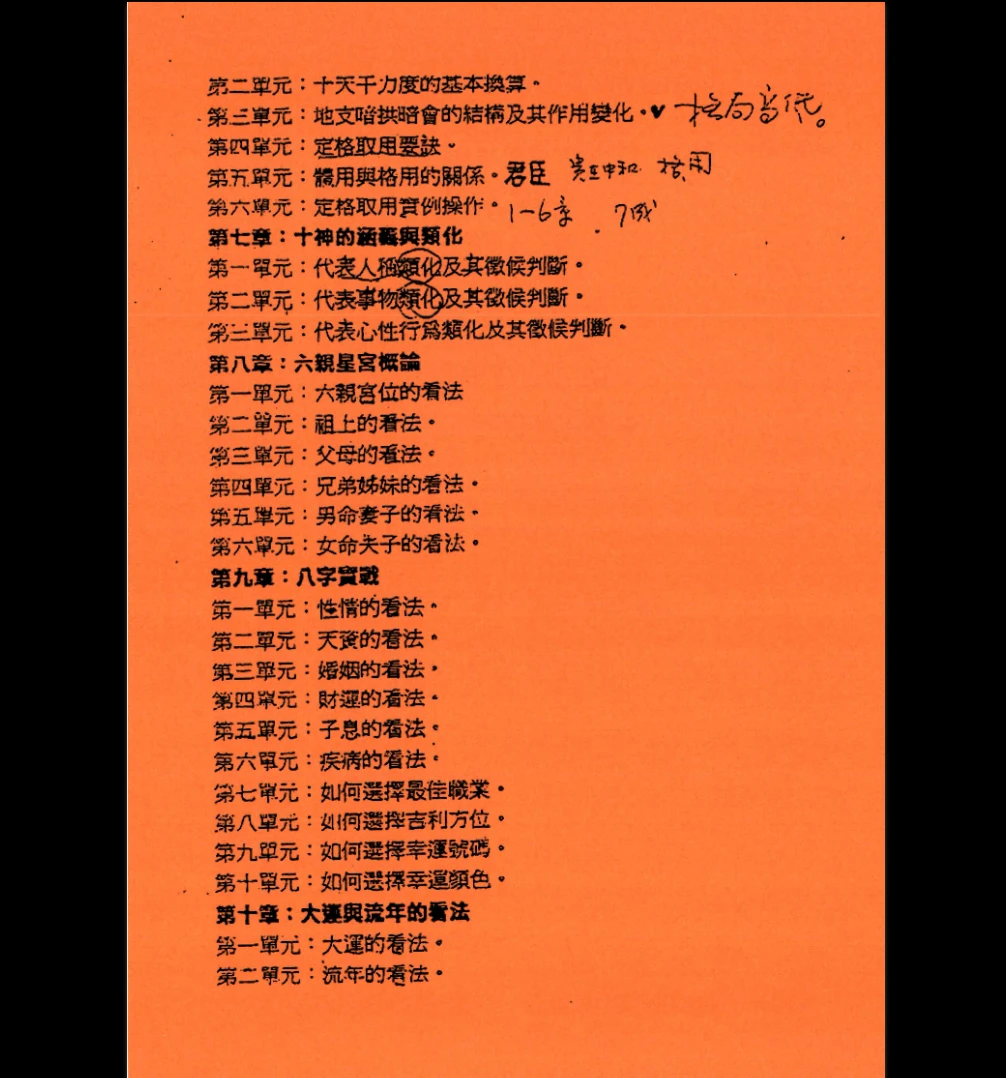 第二單元：十天干力度的基本換算。
第三單元：地支暗拱暗會的結構及其作用變化。♥ 格局高低。
第四單元：定格取用要訣。
第五單元：體用與格用的關係。君臣 貴在中和 格用
第六單元：定格取用實例操作。1－6章 7成
第七章：十神的涵義與類化
第一單元：代表人稱類化及其徵候判斷。
第二單元：代表事物類化及其徵候判斷。
第三單元：代表心性行為類化及其徵候判斷。
第八章：六親星宮概論
第一單元：六親宮位的看法
第二單元：祖上的看法。
第三單元：父母的看法。
第四單元：兄弟姊妹的看法。
第五單元：男命妻子的看法。
第六單元：女命夫子的看法。
第九章：八字實戰
第一單元：性情的看法。
第二單元：天資的看法。
第三單元：婚姻的看法。
第四單元：財運的看法。
第五單元：子息的看法。
第六單元：疾病的看法。
第七單元：如何選擇最佳職業。
第八單元：如何選擇吉利方位。
第九單元：如何選擇幸運號碼。
第十單元：如何選擇幸運顏色。
第十章：大運與流年的看法
第一單元：大運的看法。
第二單元：流年的看法。